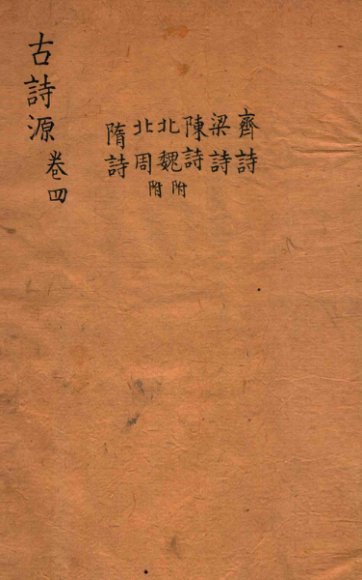 古詩源 卷四
齊詩
梁詩
陳詩
北魏附
北周附
隋詩